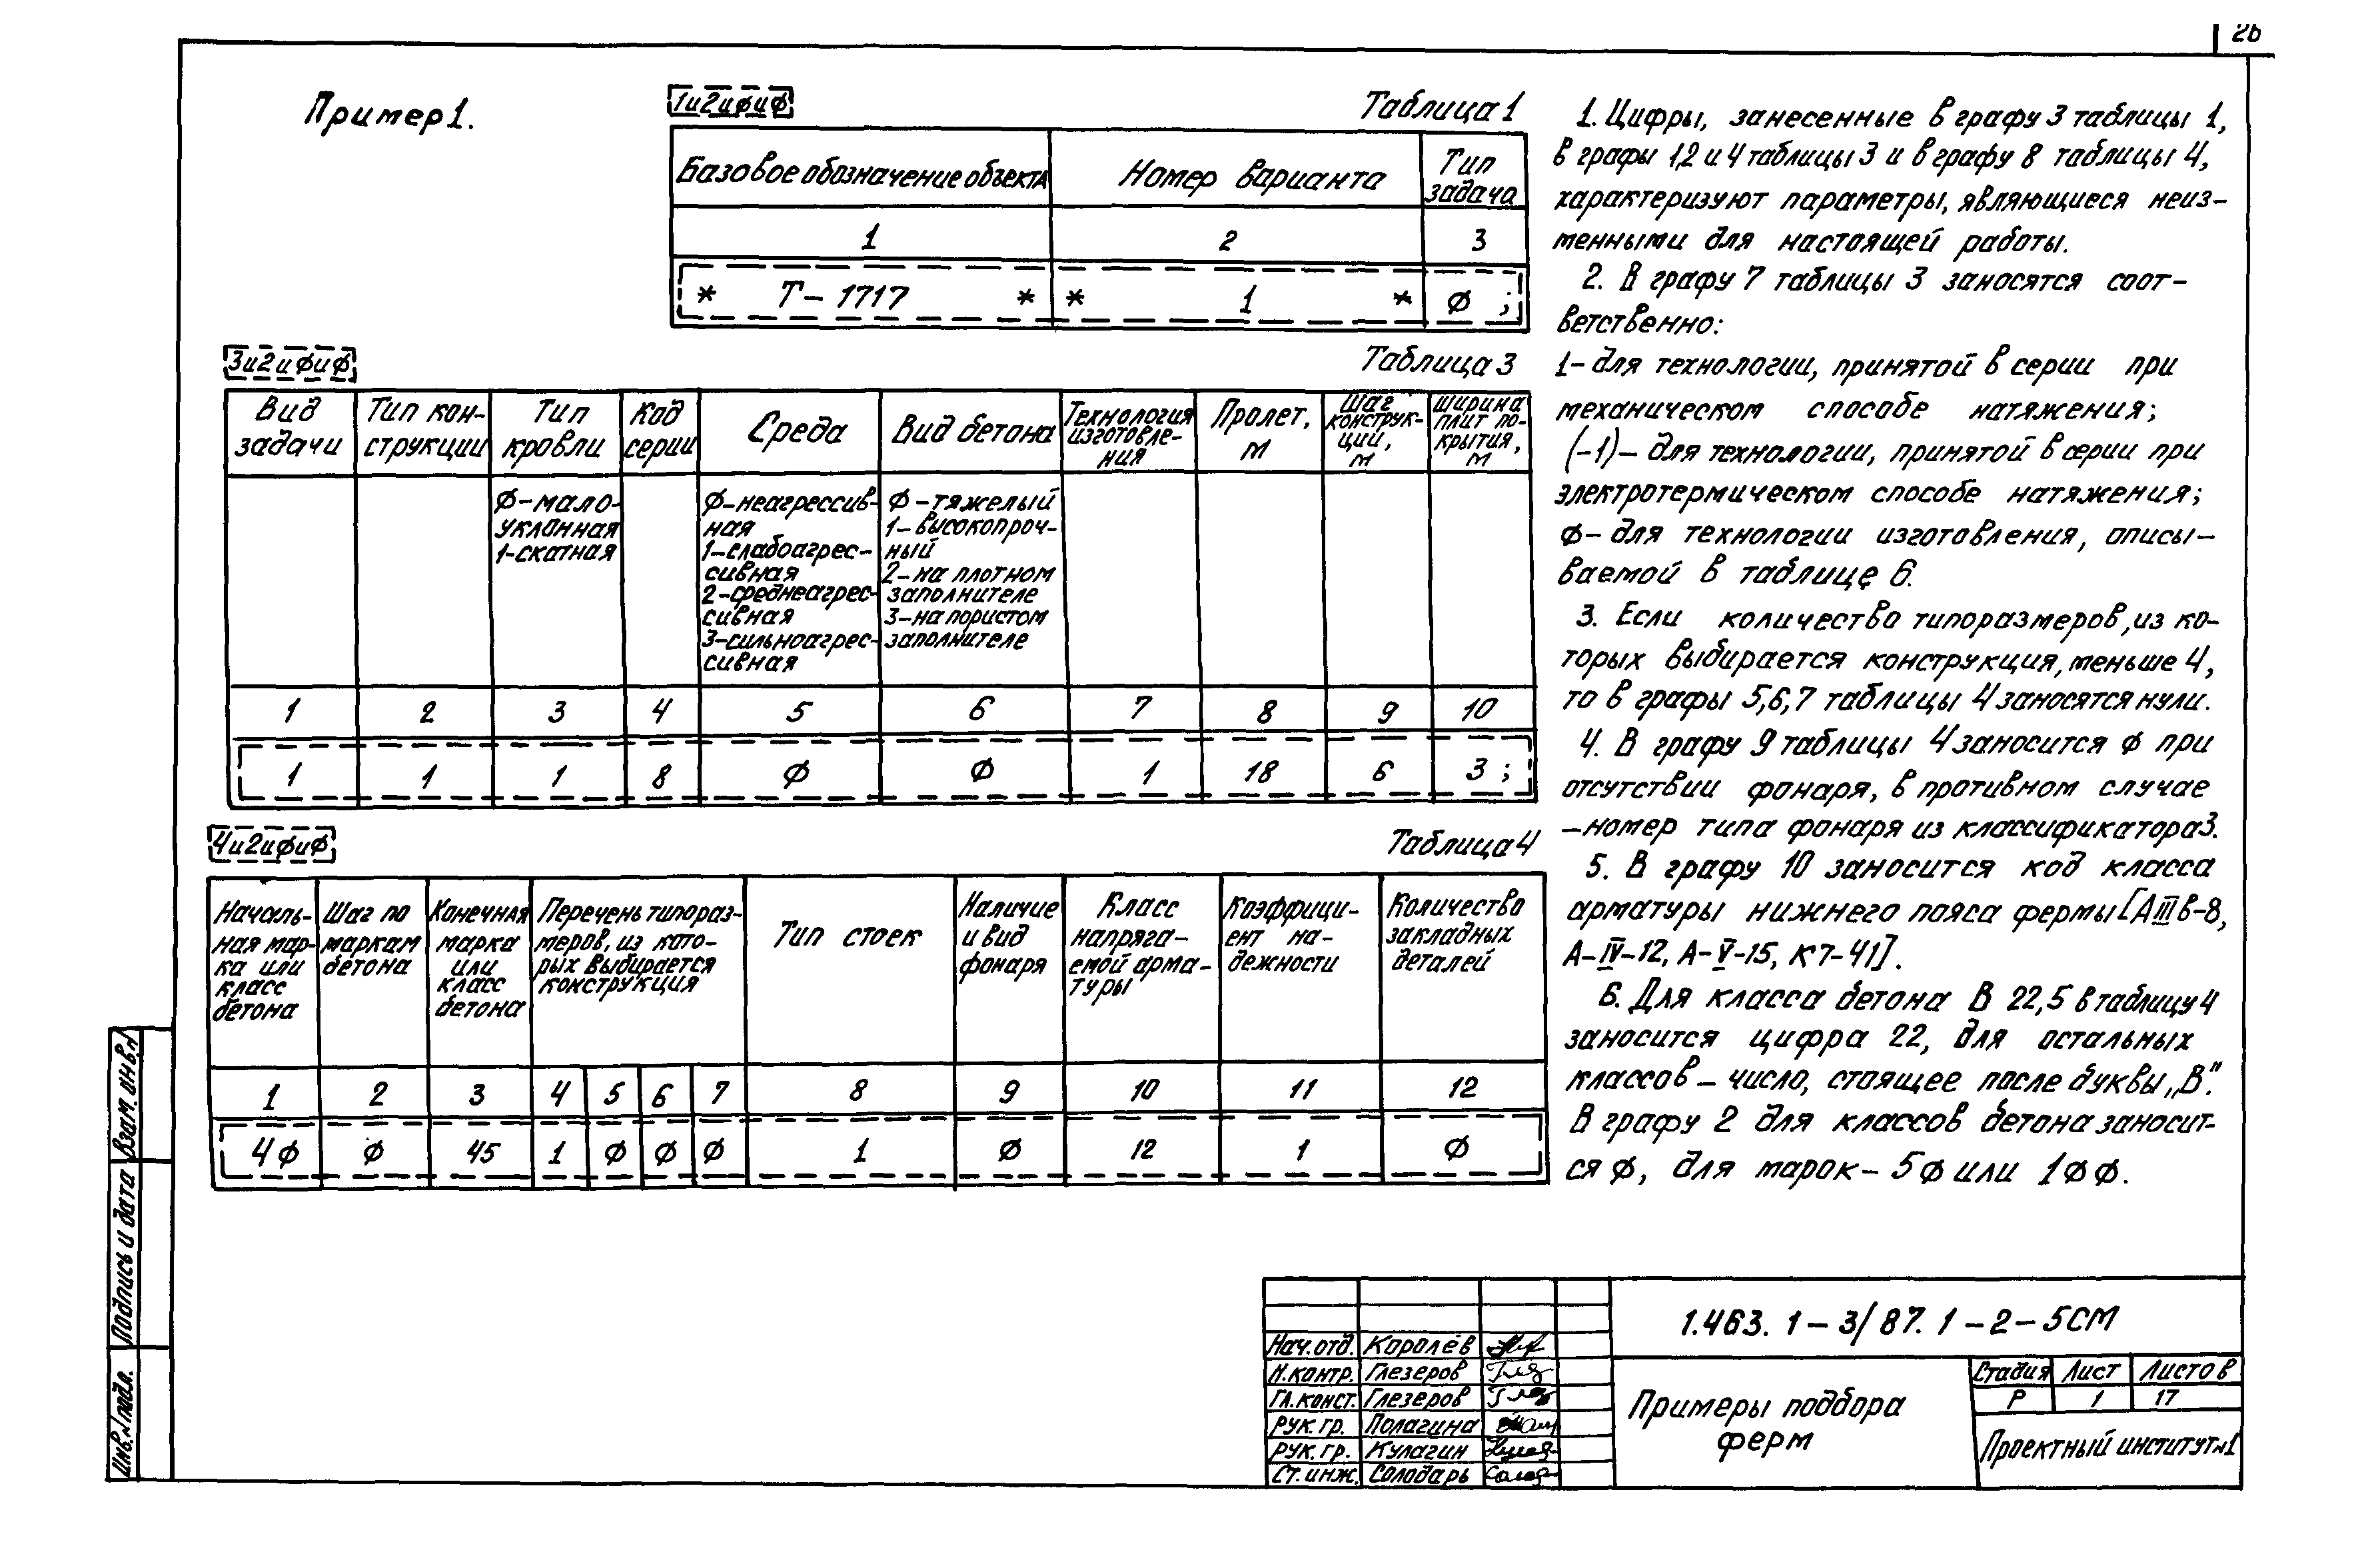 26
Пример 1.
1и2иφиφ
Таблица 1
Базовое обозначение объекта
Номер варианта
Тип
задача
1
2
3
* Т-1717 *
* 1 *
φ ;
3и2иφиφ
Таблица 3
Вид
задачи
Тип кон-
струкции
Тип
кровли
Код
серии
Среда
Вид бетона
Технология
изготовле-
ния
Пролет,
м
Шаг
конструк-
ции,
м
Ширина
плит по-
крытия,
м
φ-мало-
уклонная
1-скатная
φ-неагрессив-
ная
1-слабоагрес-
сивная
2-среднеагрес-
сивная
3-сильноагрес-
сивная
φ-тяжелый
1-высокопроч-
ный
2-на плотном
заполнителе
3-на пористом
заполнителе
1 2 3 4 5 6 7 8 9 10
1 1 1 8 φ φ 1 18 6 3 ;
4и2иφиφ
Таблица 4
Началь-
ная мар-
ка или
класс
бетона
Шаг по
маркам
бетона
Конечная
марка
или
класс
бетона
Перечень типораз-
меров, из кото-
рых выбирается
конструкция
Тип стоек
Наличие
и вид
фонаря
Класс
напряга-
емой арма-
туры
Коэффици-
ент на-
дежности
Количество
закладных
деталей
1 2 3 4 5 6 7 8 9 10 11 12
4φ φ 45 1 φ φ φ 1 φ 12 1 φ
1. Цифры, занесенные в графу 3 таблицы 1,
в графы 1,2 и 4 таблицы 3 и в графу 8 таблицы 4,
характеризуют параметры, являющиеся неиз-
менными для настоящей работы.
2. В графу 7 таблицы 3 заносятся соот-
ветственно:
1- для технологии, принятой в серии при
механическом способе натяжения;
(-1)- для технологии, принятой в серии при
электротермическом способе натяжения;
φ- для технологии изготовления, описы-
ваемой в таблице 6.
3. Если количество типоразмеров, из ко-
торых выбирается конструкция, меньше 4,
то в графы 5,6,7 таблицы 4 заносятся нули.
4. В графу 9 таблицы 4 заносится φ при
отсутствии фонаря, в противном случае
-номер типа фонаря из классификатора 3.
5. В графу 10 заносится код класса
арматуры нижнего пояса фермы [АIIIв-8,
А-IV-12, А-V-15, К7-41].
6. Для класса бетона В 22,5 в таблицу 4
заносится цифра 22, для остальных
классов - число, стоящее после буквы „В".
В графу 2 для классов бетона заносит-
ся φ, для марок - 5φ или 1φφ.
Взам. инв.№
Подпись и дата
Инв.№ подл.
Нач.отд. Королёв
Н.контр. Глезеров
Гл.конст. Глезеров
Рук.гр. Полагина
Рук.гр. Кулагин
Ст.инж. Солодарь
1.463.1-3/87.1-2-5СМ
Примеры подбора
ферм
Стадия Лист Листов
Р 1 17
Проектный институт №1